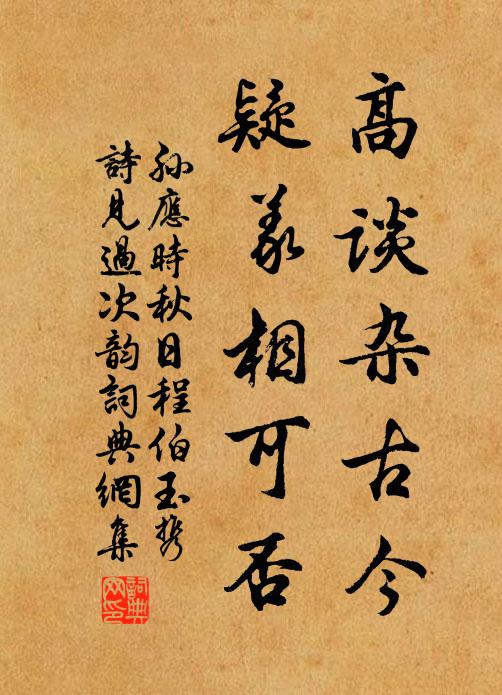 高谈杂古今
疑义相可否
孙應時秋日程伯玉携
詩見過次韵詞典網集
詞典網印